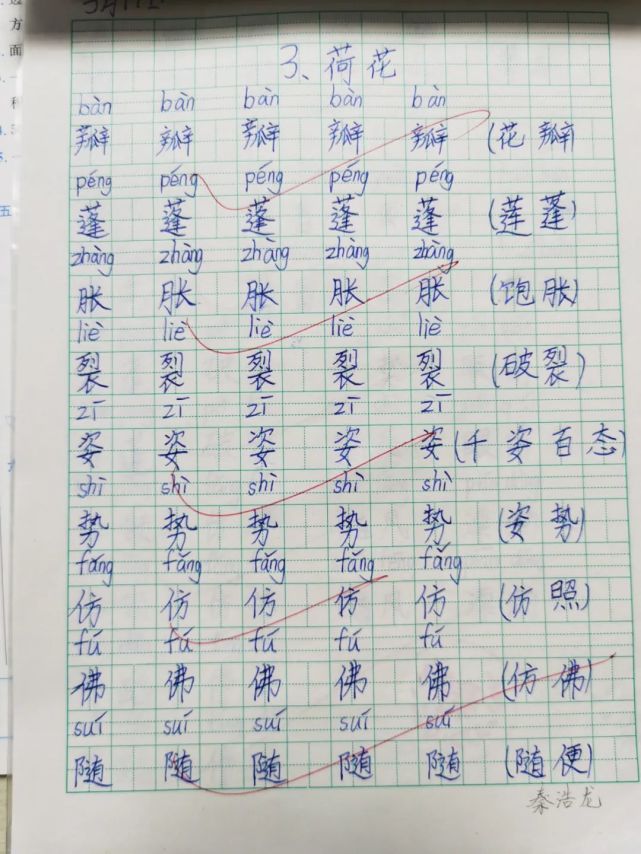 3、荷花
bàn bàn bàn bàn bàn
瓣 瓣 瓣 瓣 瓣 (花瓣)
péng péng péng péng péng
蓬 蓬 蓬 蓬 蓬 (莲蓬)
zhàng zhàng zhàng zhàng zhàng
胀 胀 胀 胀 胀 (饱胀)
liè liè liè liè liè
裂 裂 裂 裂 裂 (破裂)
zī zī zī zī zī
姿 姿 姿 姿 姿 (千姿百态)
shì shì shì shì shì
势 势 势 势 势 (姿势)
fǎng fǎng fǎng fǎng fǎng
仿 仿 仿 仿 仿 (仿照)
fú fú fú fú fú
佛 佛 佛 佛 佛 (仿佛)
suí suí suí suí suí
随 随 随 随 随 (随便)
秦浩龙